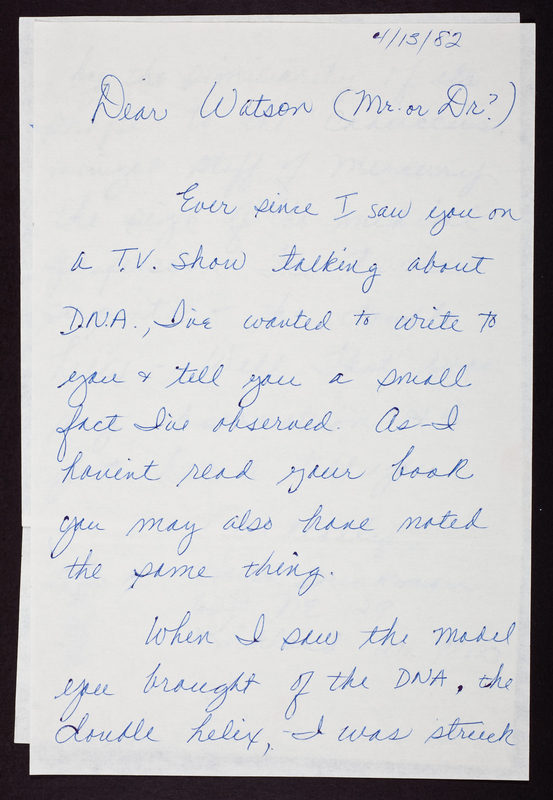 4/13/82
Dear Watson (Mr. or Dr.?)
Ever since I saw you on
a T.V. show talking about
D.N.A., I've wanted to write to
you & tell you a small
fact I've observed. As I
havint read your book
you may also have noted
the same thing.
When I saw the model
you brought of the DNA, the
double helix, - I was struck